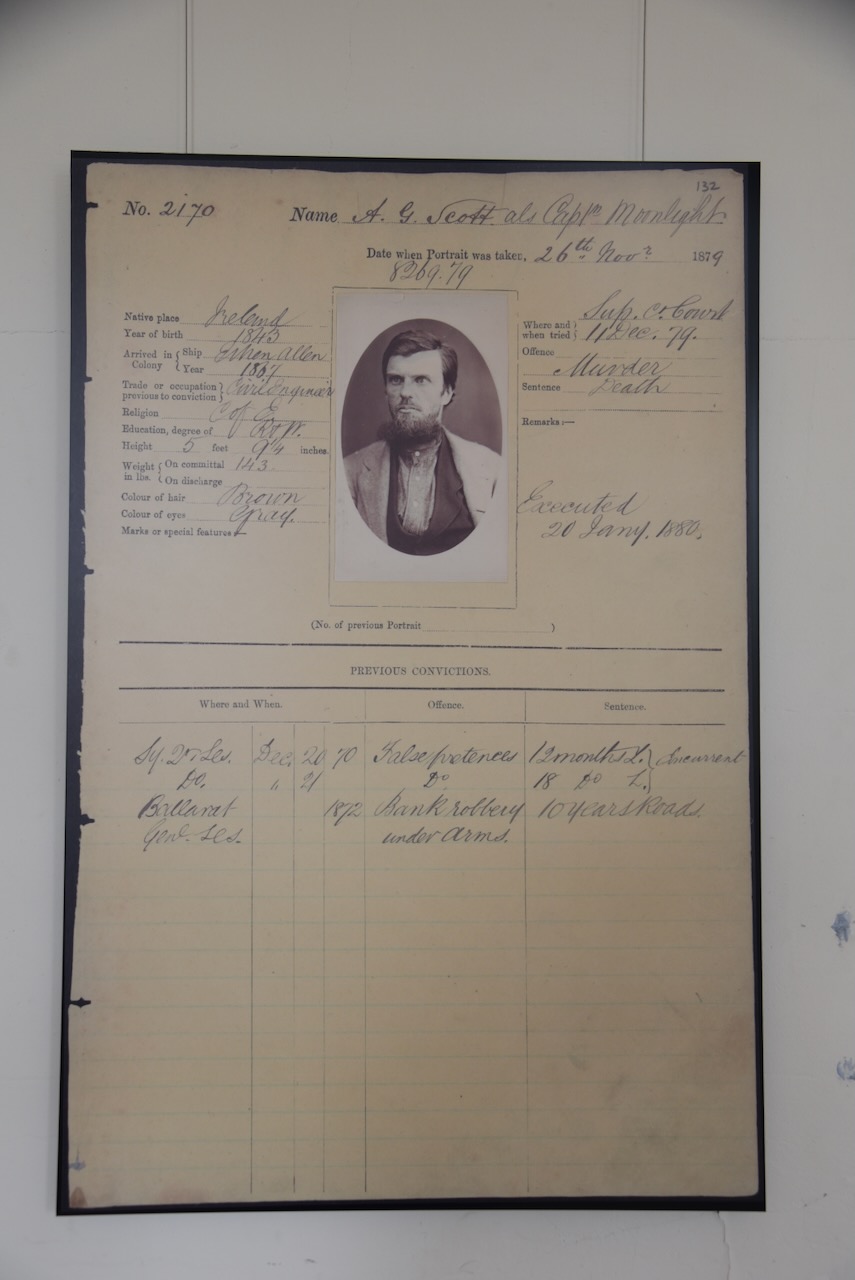 132
No. 2170 Name A. G. Scott als Captn Moonlight
Date when Portrait was taken, 26th Novr 1879
8269.79
Native place Ireland
Year of birth 1843
Arrived in Colony { Ship Allen
Year 1867
Trade or occupation previous to conviction } Civil Engineer
Religion C of E
Education, degree of R&W.
Height 5 feet 9¼ inches.
Weight in lbs. { On committal 143
On discharge
Colour of hair Brown
Colour of eyes Gray.
Marks or special features:—
Where and when tried } Sup. Ct Court
11 Dec. 79.
Offence
Murder
Sentence Death
Remarks:—
Executed
20 Jany. 1880.
(No. of previous Portrait )
PREVIOUS CONVICTIONS.
Where and When. Offence. Sentence.
Sy. Dt Ses. Dec. 20 70 False pretences 12 months L. } Concurrent
Do. " 21 Do 18 Do L.
Ballarat 1872 Bank robbery 10 years Roads.
Genl. Ses. under arms.